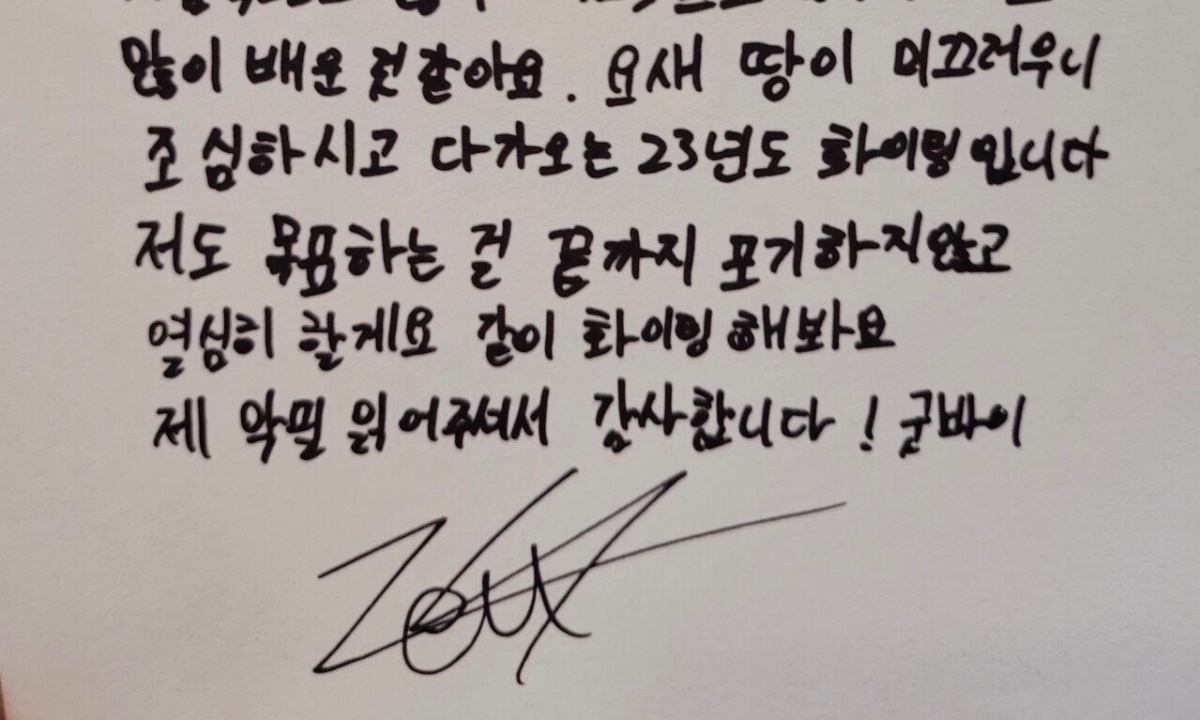 많이 배운 것 같아요. 요새 땅이 미끄러우니
조심하시고 다가오는 23년도 화이팅입니다
저도 목표하는 걸 끝까지 포기하지않고
열심히 할게요 같이 화이팅 해봐요
제 악필 읽어주셔서 감사합니다! 굳바이